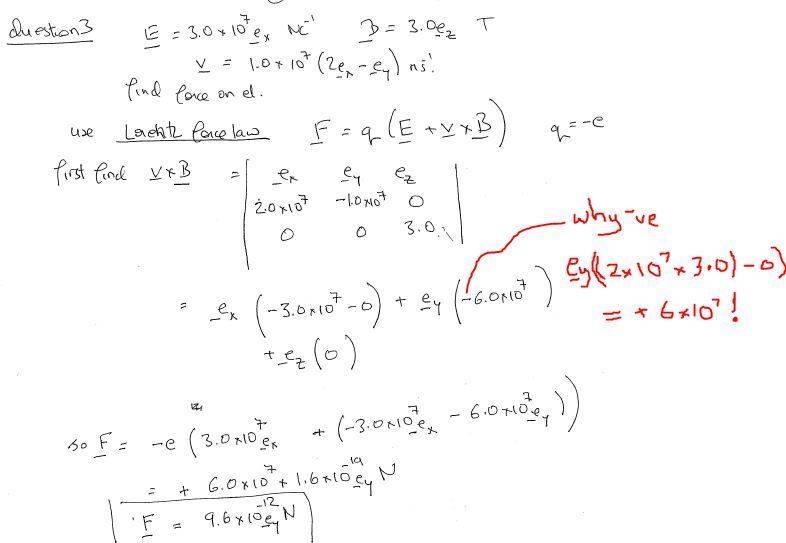 Question 3 E = 3.0 × 10⁷ eₓ NC⁻¹ B = 3.0 e_z T
v = 1.0 × 10⁷ (2eₓ − e_y) ms⁻¹
find force on el.
use Lorentz force law F = q (E + v × B) q = −e
first find v × B = | eₓ e_y e_z |
| 2.0×10⁷ −1.0×10⁷ 0 |
| 0 0 3.0 |
why -ve
e_y((2×10⁷ × 3.0) − 0)
= + 6×10⁷ !
= eₓ (−3.0×10⁷ − 0) + e_y (−6.0×10⁷)
+ e_z (0)
so F = −e (3.0×10⁷ eₓ + (−3.0×10⁷ eₓ − 6.0×10⁷ e_y))
= + 6.0×10⁷ × 1.6×10⁻¹⁹ e_y N
F = 9.6×10⁻¹² e_y N